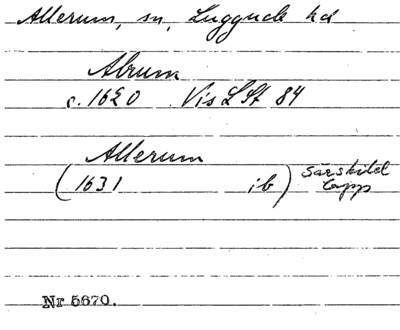 Allerum, sn, Luggude hd
Abrum
c. 1620 Vis L St 84
Allerum
(1631 ib) särskild
lapp
Nr 5670.